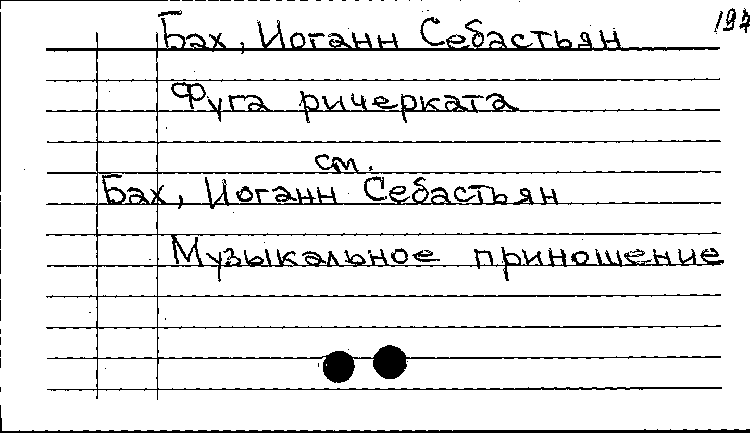 Бах, Иоганн Себастьян
Фуга ричерката
см.
Бах, Иоганн Себастьян
Музыкальное приношение